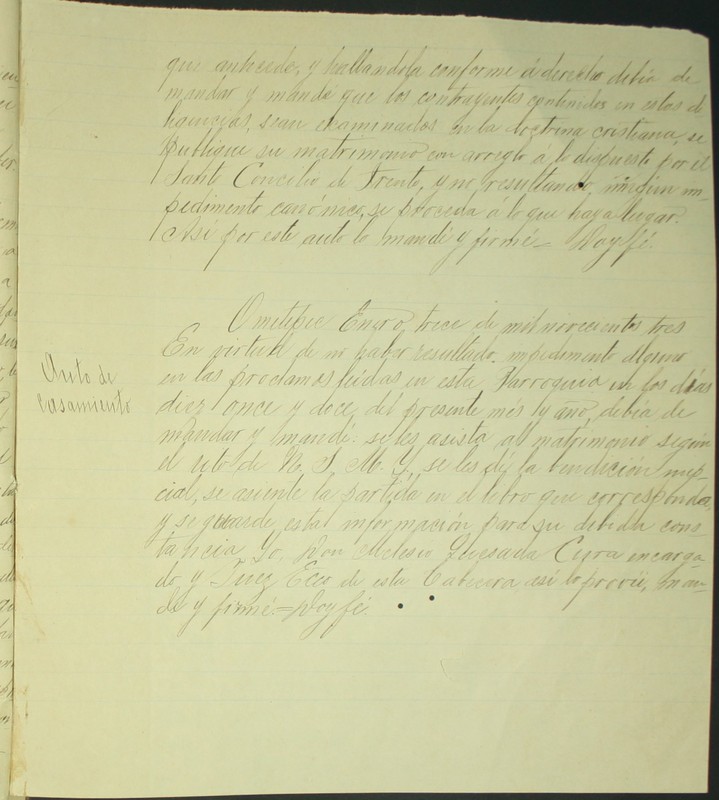 que antecede, y hallandola conforme á derecho debia de
mandar y mandé que los contrayentes contenidos en estas di
ligencias, sean examinados en la doctrina cristiana, se
publique su matrimonio con arreglo á lo dispuesto por el
Santo Concilio de Trento, y no resultando, ningun im-
pedimento canónico, se proceda á lo que haya lugar.
Asi por este auto lo mandé y firmé= Doy fé.
Ometepec Enero, trece de mil novecientos tres
Auto de
casamiento
En virtud de no haber resultado impedimento alguno
en las proclamas leidas en esta Parroquia en los dias
diez once y doce, del presente més y año, debia de
mandar y mandé: se les asista al matrimonio según
el rito de N. S. M. Y, se les dé la bendición nup-
cial, se asiente la partida en el libro que corresponda,
y se guarde esta información para su debida cons-
tancia. Yo, Don Melesio Quesada Cura encarga-
do, y Juez Eco de esta Cabecera asi lo proveí, man-
dé y firmé.=Doy fé.